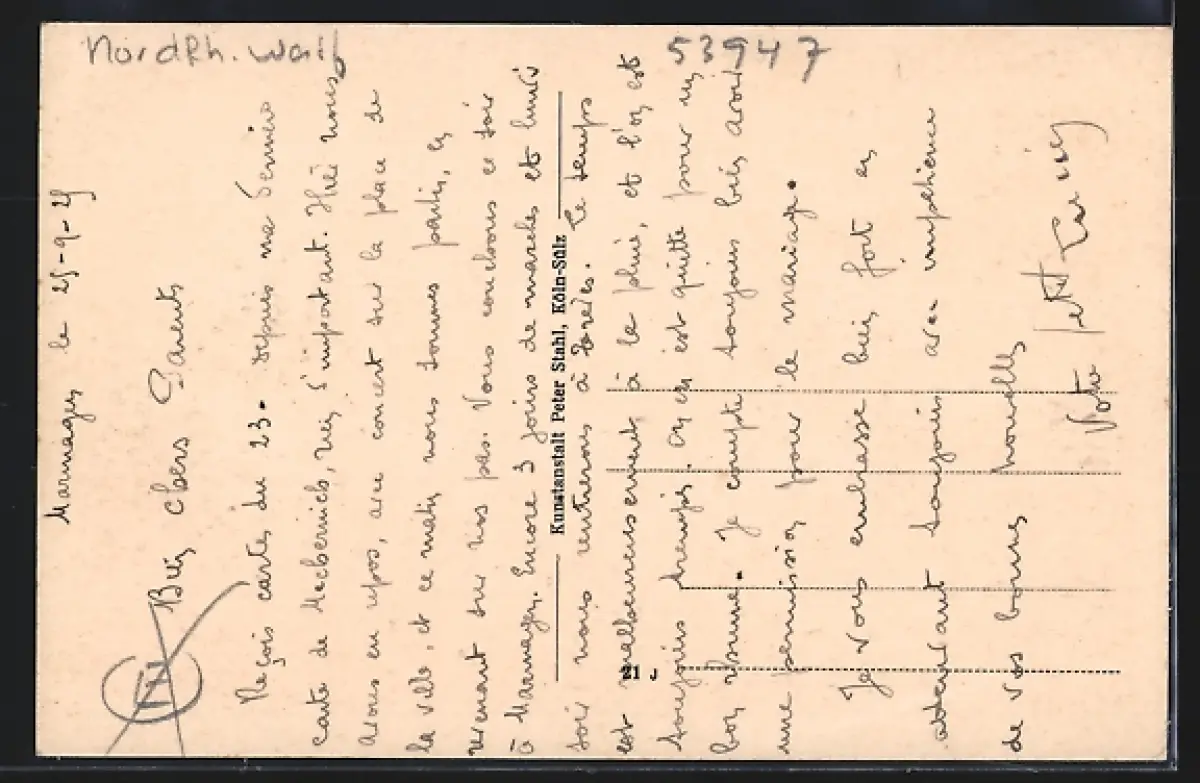 Nordrh. Westf
53947
Marmagen le 25-9-25
Bien chers Parents
Reçois cartes du 23. Depuis ma dernière
carte de Mechernich, rien d'important. Hier nous
avons eu repos, avec concert sur la place de
la ville, et ce matin nous sommes partis, en
revenant sur nos pas. Nous couchons ce soir
à Marmagen. Encore 3 jours de marches et lundi
soir nous rentrerons à . Le temps
est malheureusement à la pluie, et l'on est
toujours trempés. On en est quitte pour un
bon rhume. Je compte toujours bien avoir
une permission pour le mariage.
Je vous embrasse bien fort en
attendant toujours avec impatience
de vos bonnes nouvelles
Votre petit
Kunstanstalt Peter Stahl, Köln-Sülz
21 J